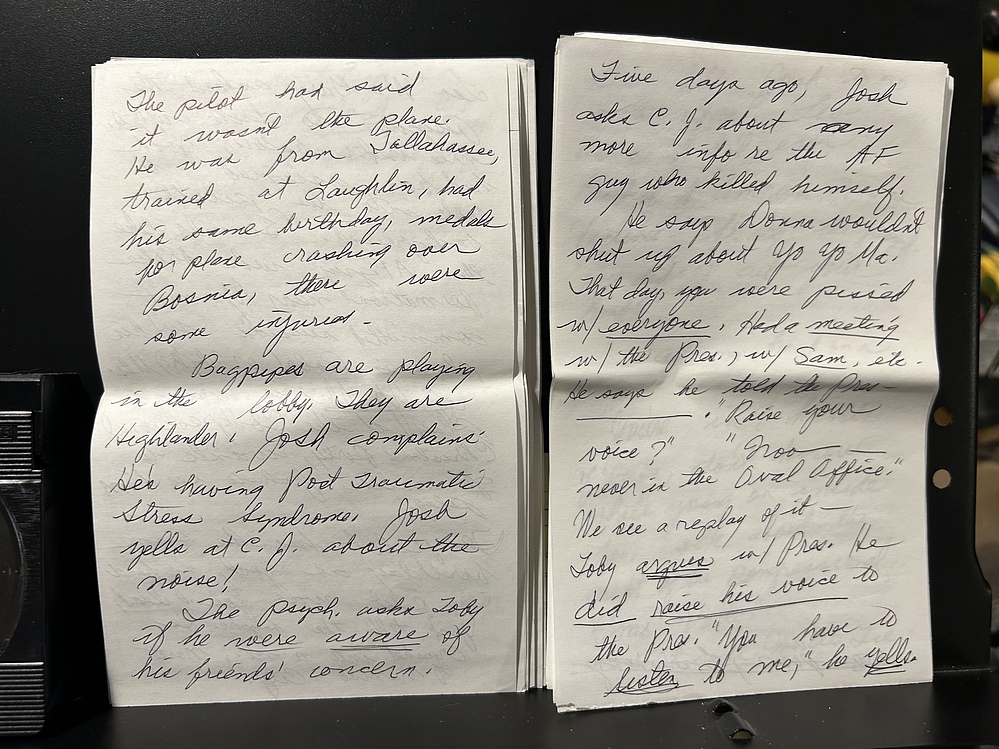 The pilot had said
it wasn't the plane.
He was from Tallahassee,
trained at Laughlin, had
his same birthday, medals
for plane crashing over
Bosnia, there were
some injured -
Bagpipes are playing
in the lobby. They are
Highlander. Josh complains.
He's having Post Traumatic
Stress Syndrome. Josh
yells at C. J. about the
noise!
The psych. asks Toby
if he were aware of
his friends' concern.
Five days ago, Josh
asks C. J. about any
more info re the AF
guy who killed himself.
He says Donna wouldn't
shut up about Yo Yo Ma.
That day, you were pissed
w/ everyone. Had a meeting
w/ the Pres., w/ Sam, etc.
He says he told the Pres—
. "Raise your
voice?" "Noo —
never in the Oval Office."
We see a replay of it —
Toby argues w/ Pres. He
did raise his voice to
the Pres. "You have to
listen to me," he yells.